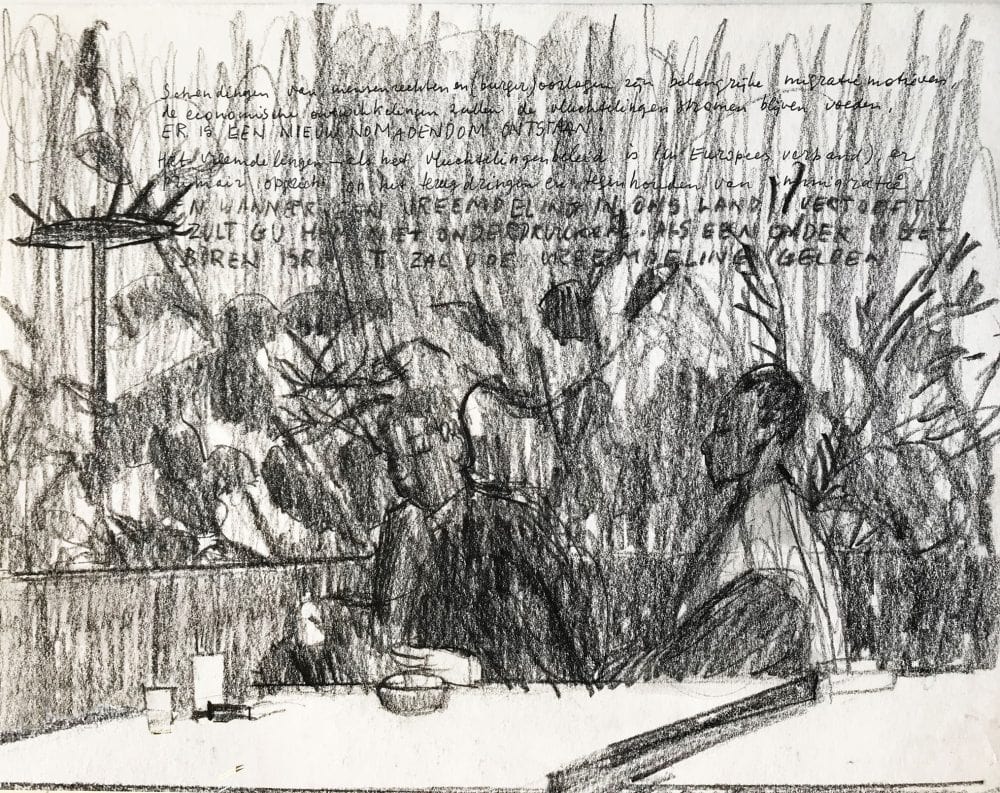 Schendingen van mensenrechten en (burger)oorlogen zijn belangrijke migratiemotieven,
de economische ontwikkelingen zullen de vluchtelingenstromen blijven voeden.
ER IS EEN NIEUW NOMADENDOM ONTSTAAN!
Het vreemdelingen – als het vluchtelingenbeleid is (in Europees verband), er
primair op gericht op het terugdringen en tegenhouden van immigratie
EN WANNEER EEN VREEMDELING IN ONS LAND VERTOEFT
ZULT GIJ HEM NIET ONDERDRUKKEN. ALS EEN ONDER U GE-
BOREN ZAL U DE VREEMDELING GELDEN